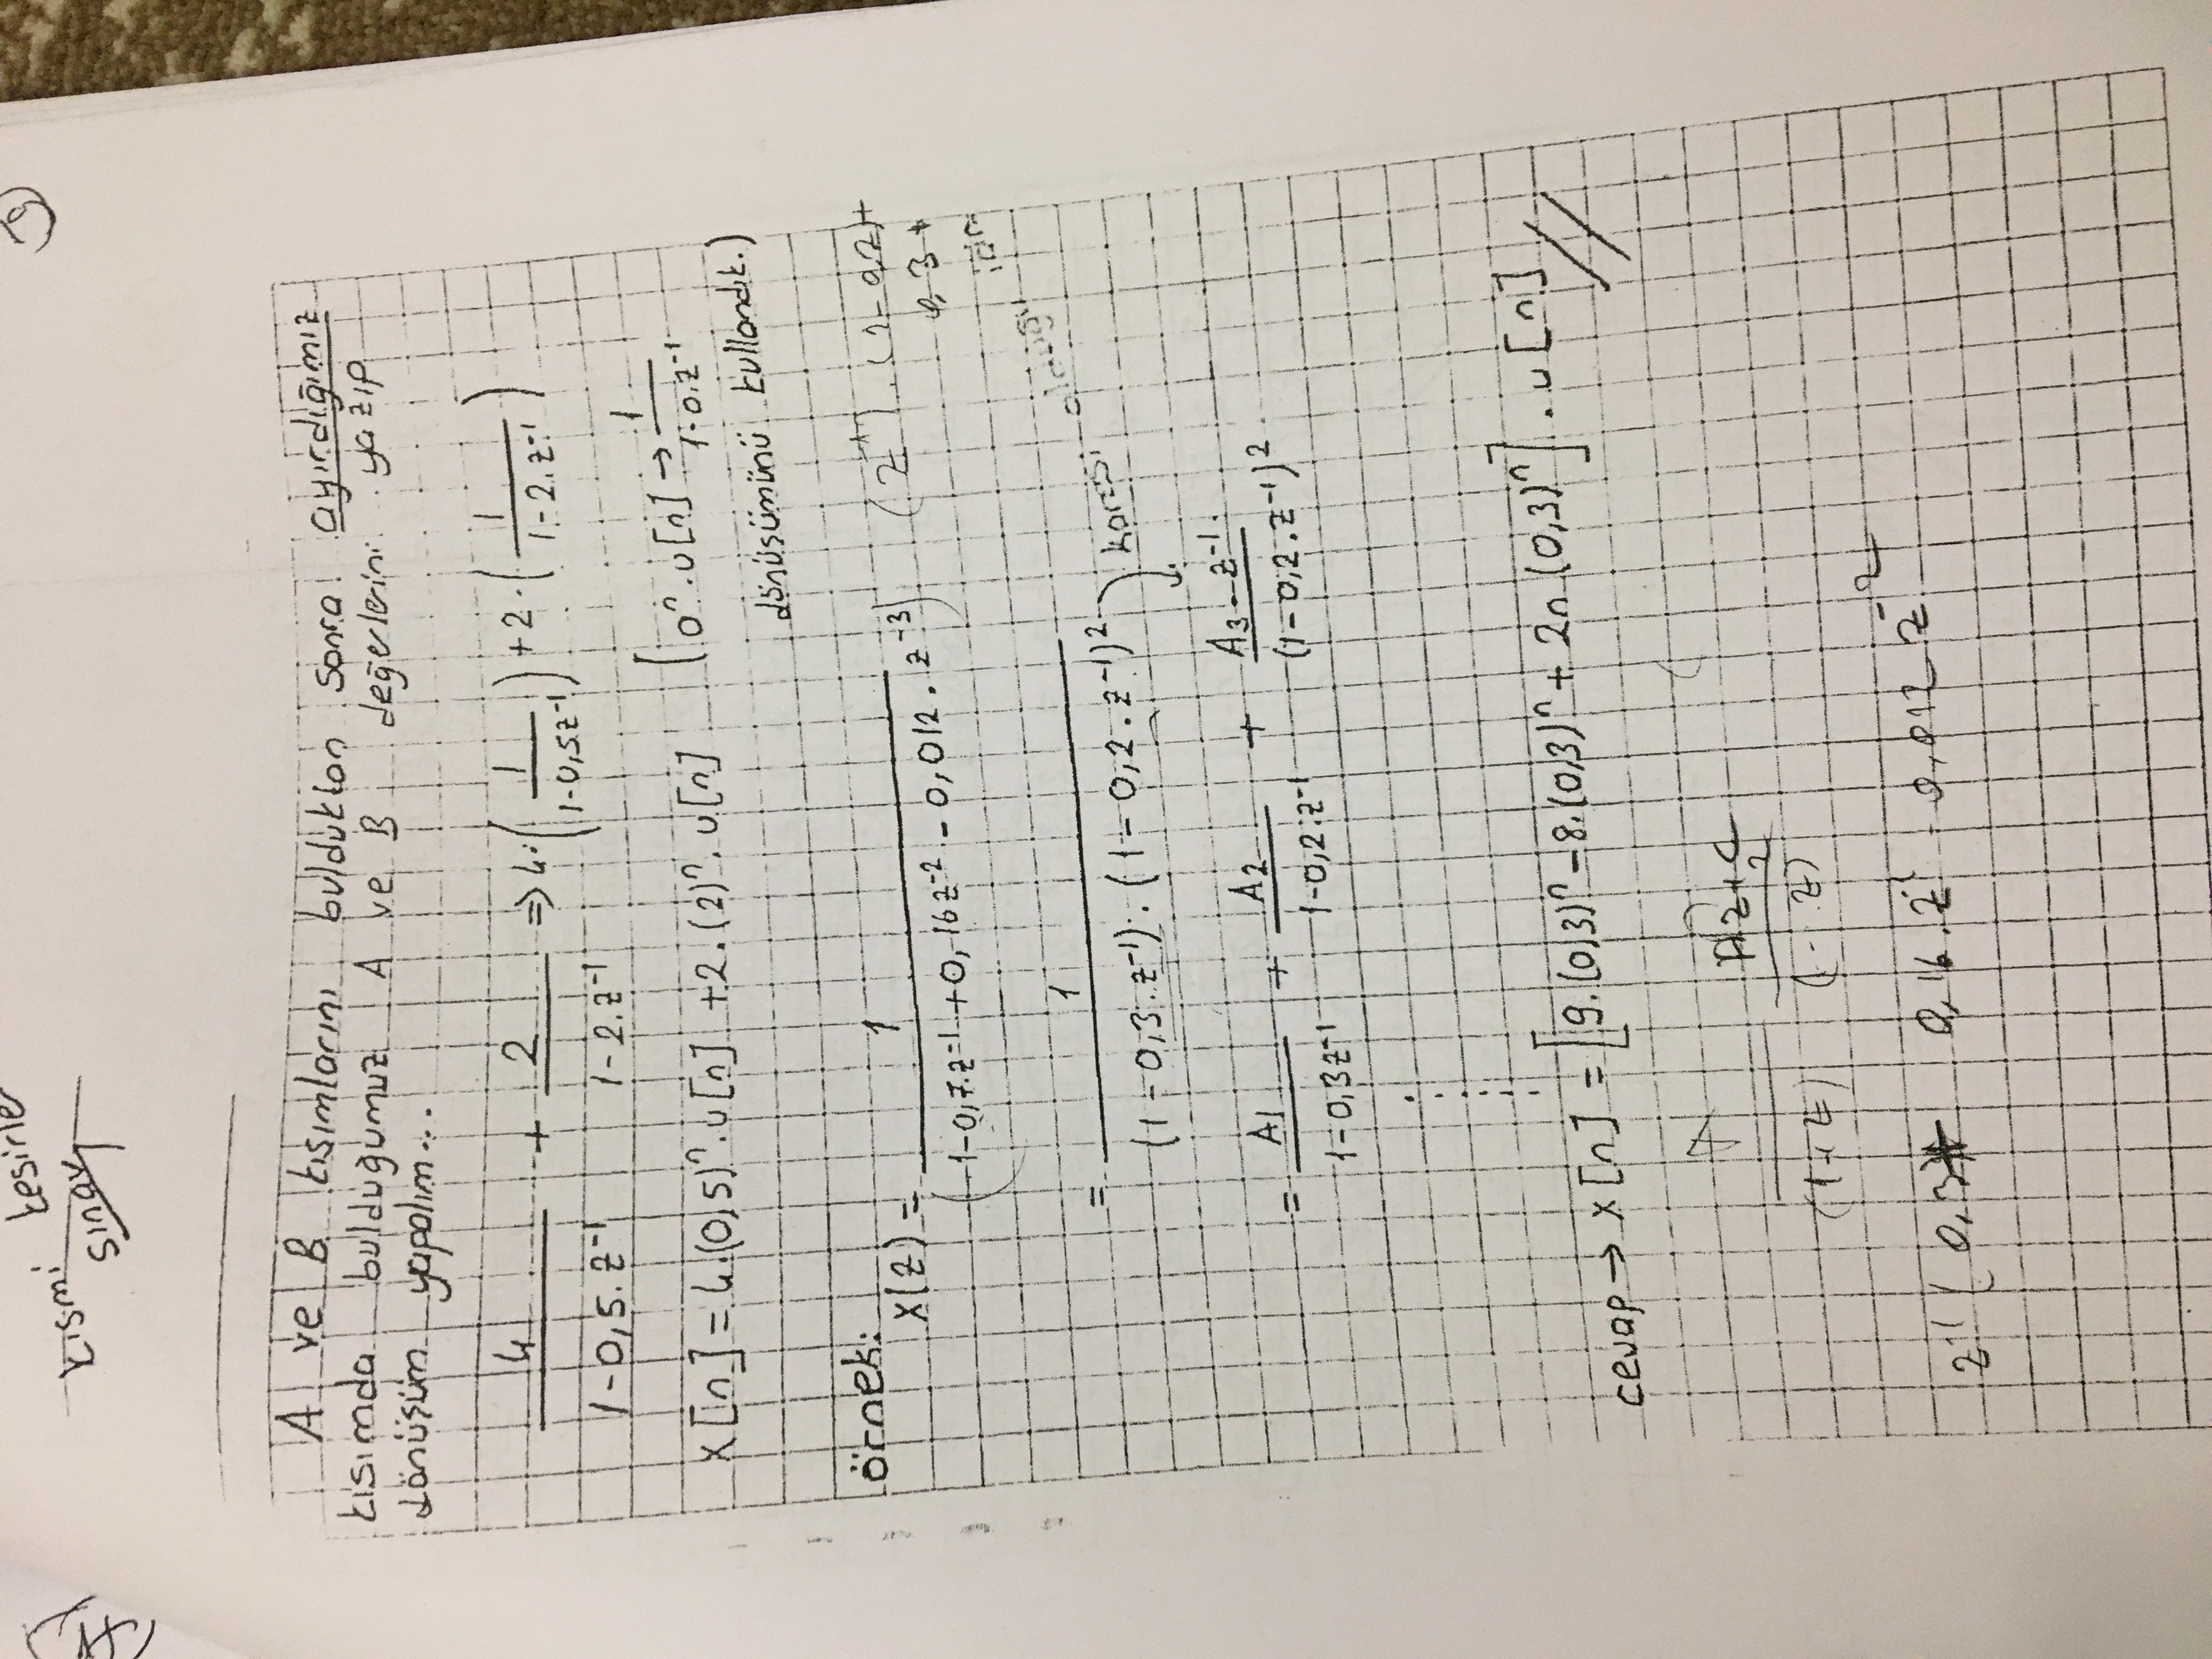 kısmi kesirle
sınav
A ve B kısımlarını bulduktan sonra ayırdığımız
kısımda bulduğumuz A ve B değerlerini yazıp
dönüşüm yapalım...
4/(1-0,5.z⁻¹) + 2/(1-2.z⁻¹) ⇒ 4.(1/(1-0,5z⁻¹)) + 2.(1/(1-2.z⁻¹))
x[n] = 4.(0,5)ⁿ.u[n] + 2.(2)ⁿ.u[n] (aⁿ.u[n] → 1/(1-a.z⁻¹)
dönüşümünü kullandık.)
örnek:
x(z) = 1/(1-0,7.z⁻¹ + 0,16z⁻² - 0,012.z⁻³)
= 1/((1-0,3.z⁻¹).(1-0,2.z⁻¹)²) karesi olduğu için
= A1/(1-0,3z⁻¹) + A2/(1-0,2.z⁻¹) + A3-z⁻¹/(1-0,2.z⁻¹)²
cevap → x[n] = [9.(0,3)ⁿ - 8.(0,3)ⁿ + 2n(0,3)ⁿ].u[n]
z⁻¹( 0,3 0,16.z⁻¹ 0,012 z⁻²